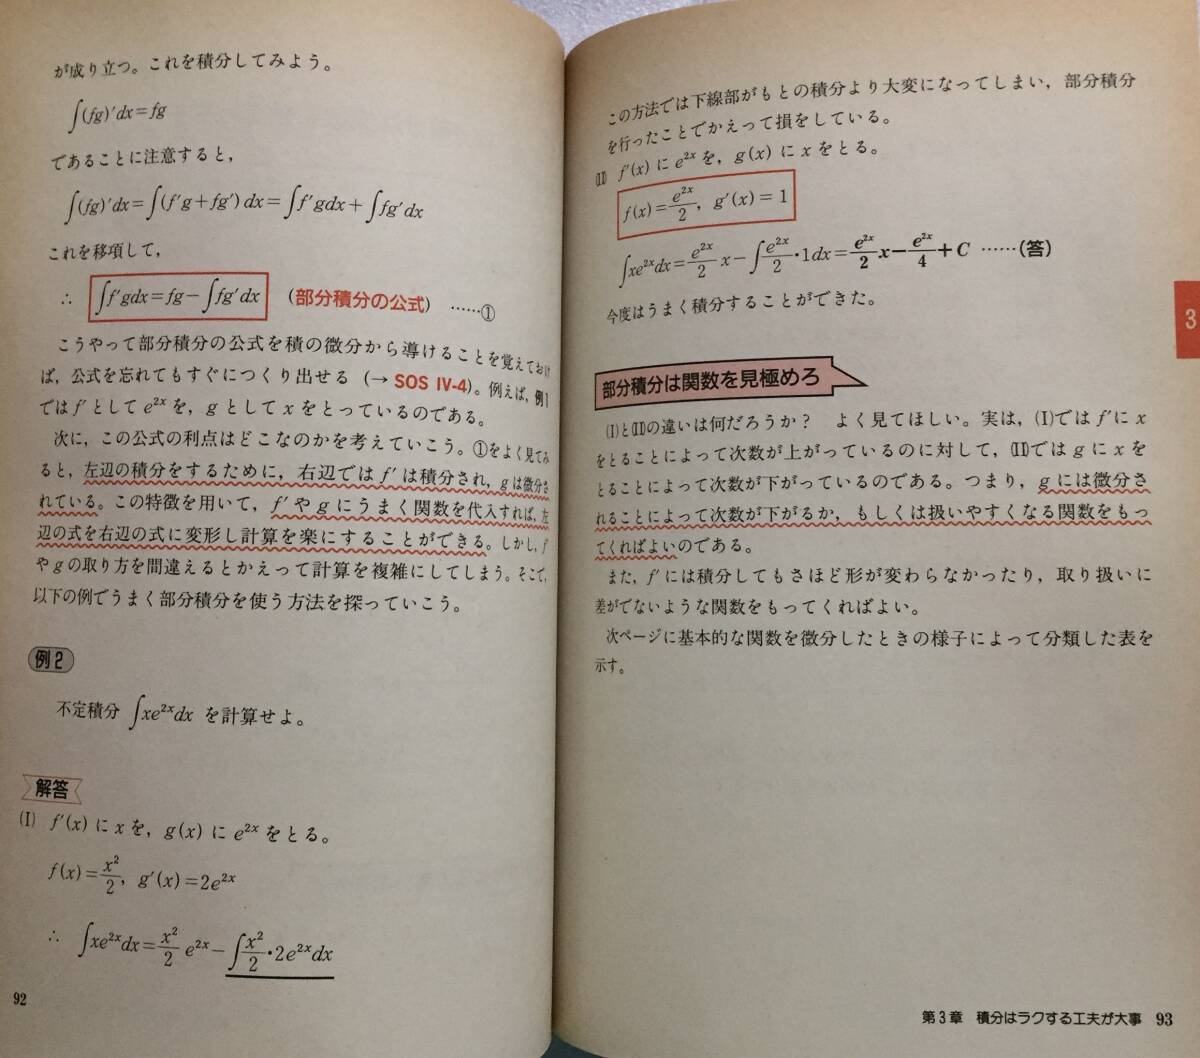 が成り立つ。これを積分してみよう。
∫(fg)′dx=fg
であることに注意すると,
∫(fg)′dx=∫(f′g+fg′)dx=∫f′gdx+∫fg′dx
これを移項して,
∴ ∫f′gdx=fg−∫fg′dx (部分積分の公式) ……①
こうやって部分積分の公式を積の微分から導けることを覚えておけ
ば, 公式を忘れてもすぐにつくり出せる (→ SOS IV-4)。例えば, 例1
ではf′としてe²ˣを, gとしてxをとっているのである。
次に, この公式の利点はどこなのかを考えていこう。①をよく見てみ
ると, 左辺の積分をするために, 右辺ではf′は積分され, gは微分さ
れている。この特徴を用いて, f′やgにうまく関数を代入すれば, 左
辺の式を右辺の式に変形し計算を楽にすることができる。しかし, f′
やgの取り方を間違えるとかえって計算を複雑にしてしまう。そこで,
以下の例でうまく部分積分を使う方法を探っていこう。
例2
不定積分 ∫xe²ˣdx を計算せよ。
解答
(I) f′(x)にxを, g(x)にe²ˣをとる。
f(x)=x²/2, g′(x)=2e²ˣ
∴ ∫xe²ˣdx=x²/2 e²ˣ−∫x²/2・2e²ˣdx
92
この方法では下線部がもとの積分より大変になってしまい, 部分積分
を行ったことでかえって損をしている。
(II) f′(x)にe²ˣを, g(x)にxをとる。
f(x)=e²ˣ/2, g′(x)=1
∫xe²ˣdx=e²ˣ/2 x−∫e²ˣ/2・1dx=e²ˣ/2 x−e²ˣ/4+C ……(答)
今度はうまく積分することができた。
3
部分積分は関数を見極めろ
(I)と(II)の違いは何だろうか? よく見てほしい。実は, (I)ではf′にx
をとることによって次数が上がっているのに対して, (II)ではgにxを
とることによって次数が下がっているのである。つまり, gには微分さ
れることによって次数が下がるか, もしくは扱いやすくなる関数をもっ
てくればよいのである。
また, f′には積分してもさほど形が変わらなかったり, 取り扱いに
差がでないような関数をもってくればよい。
次ページに基本的な関数を微分したときの様子によって分類した表を
示す。
第3章 積分はラクする工夫が大事 93